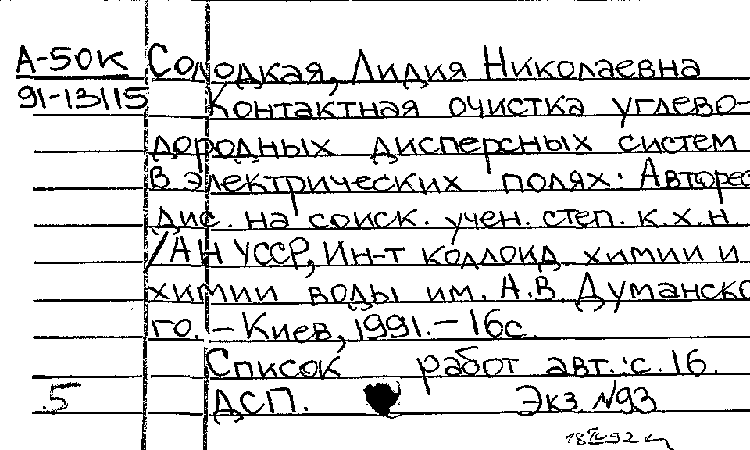 А-50к Солодкая, Лидия Николаевна
91-13115 Контактная очистка углево-
дородных дисперсных систем
в электрических полях: Автореф
дис. на соиск. учен. степ. к.х.н
/АН УССР, Ин-т коллоид. химии и
химии воды им. А.В. Думанско
го. – Киев, 1991. – 16с.
Список работ авт.: с. 16.
5 ДСП. Экз. №93